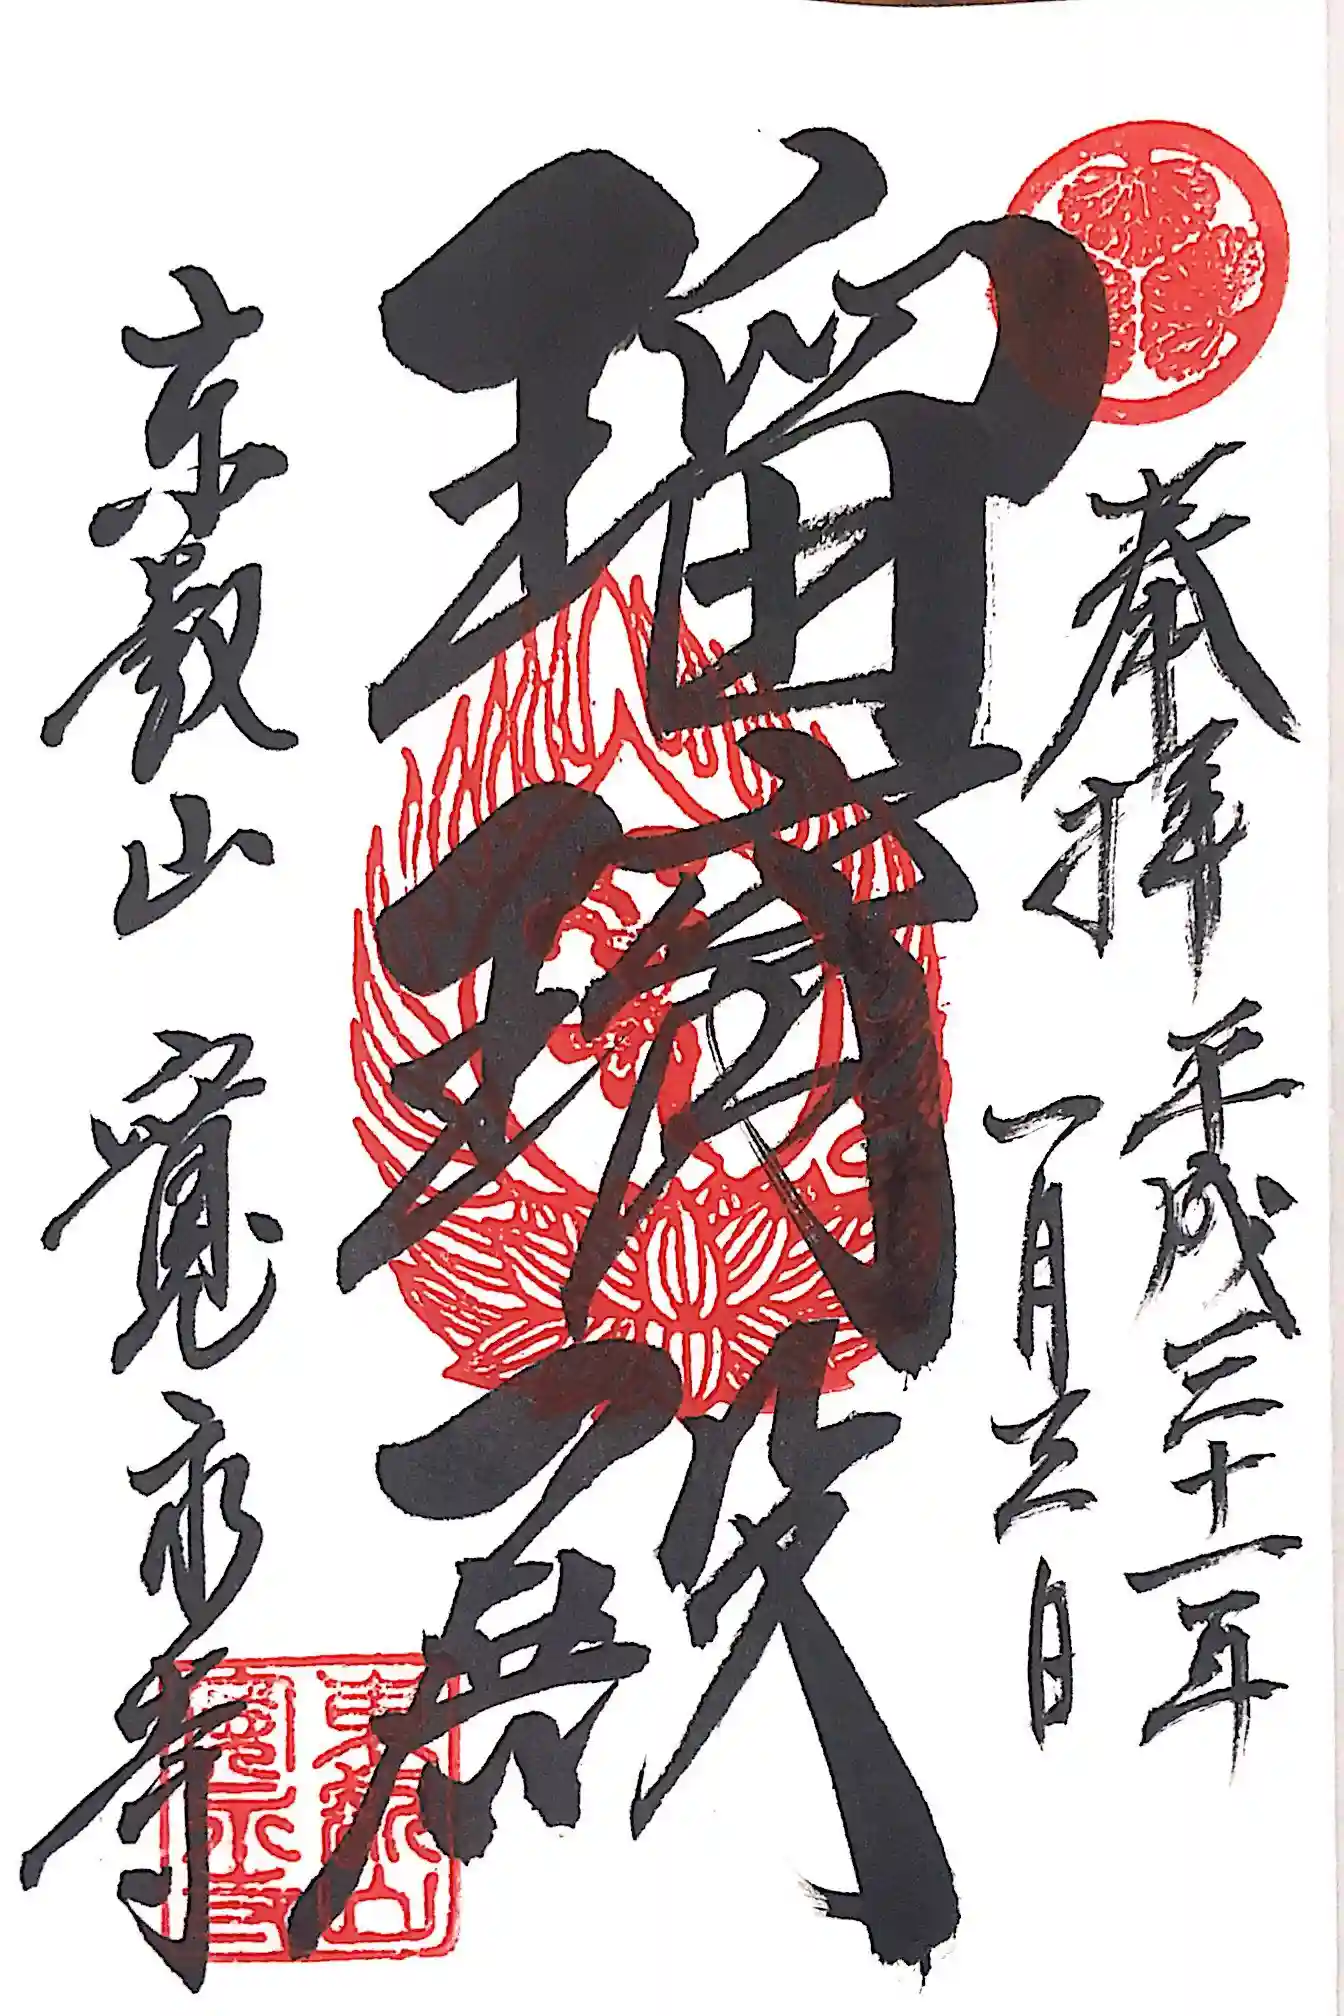 奉拝 平成三十一年
一月五日
瑠璃殿
東叡山 寛永寺
東叡山
寛永寺